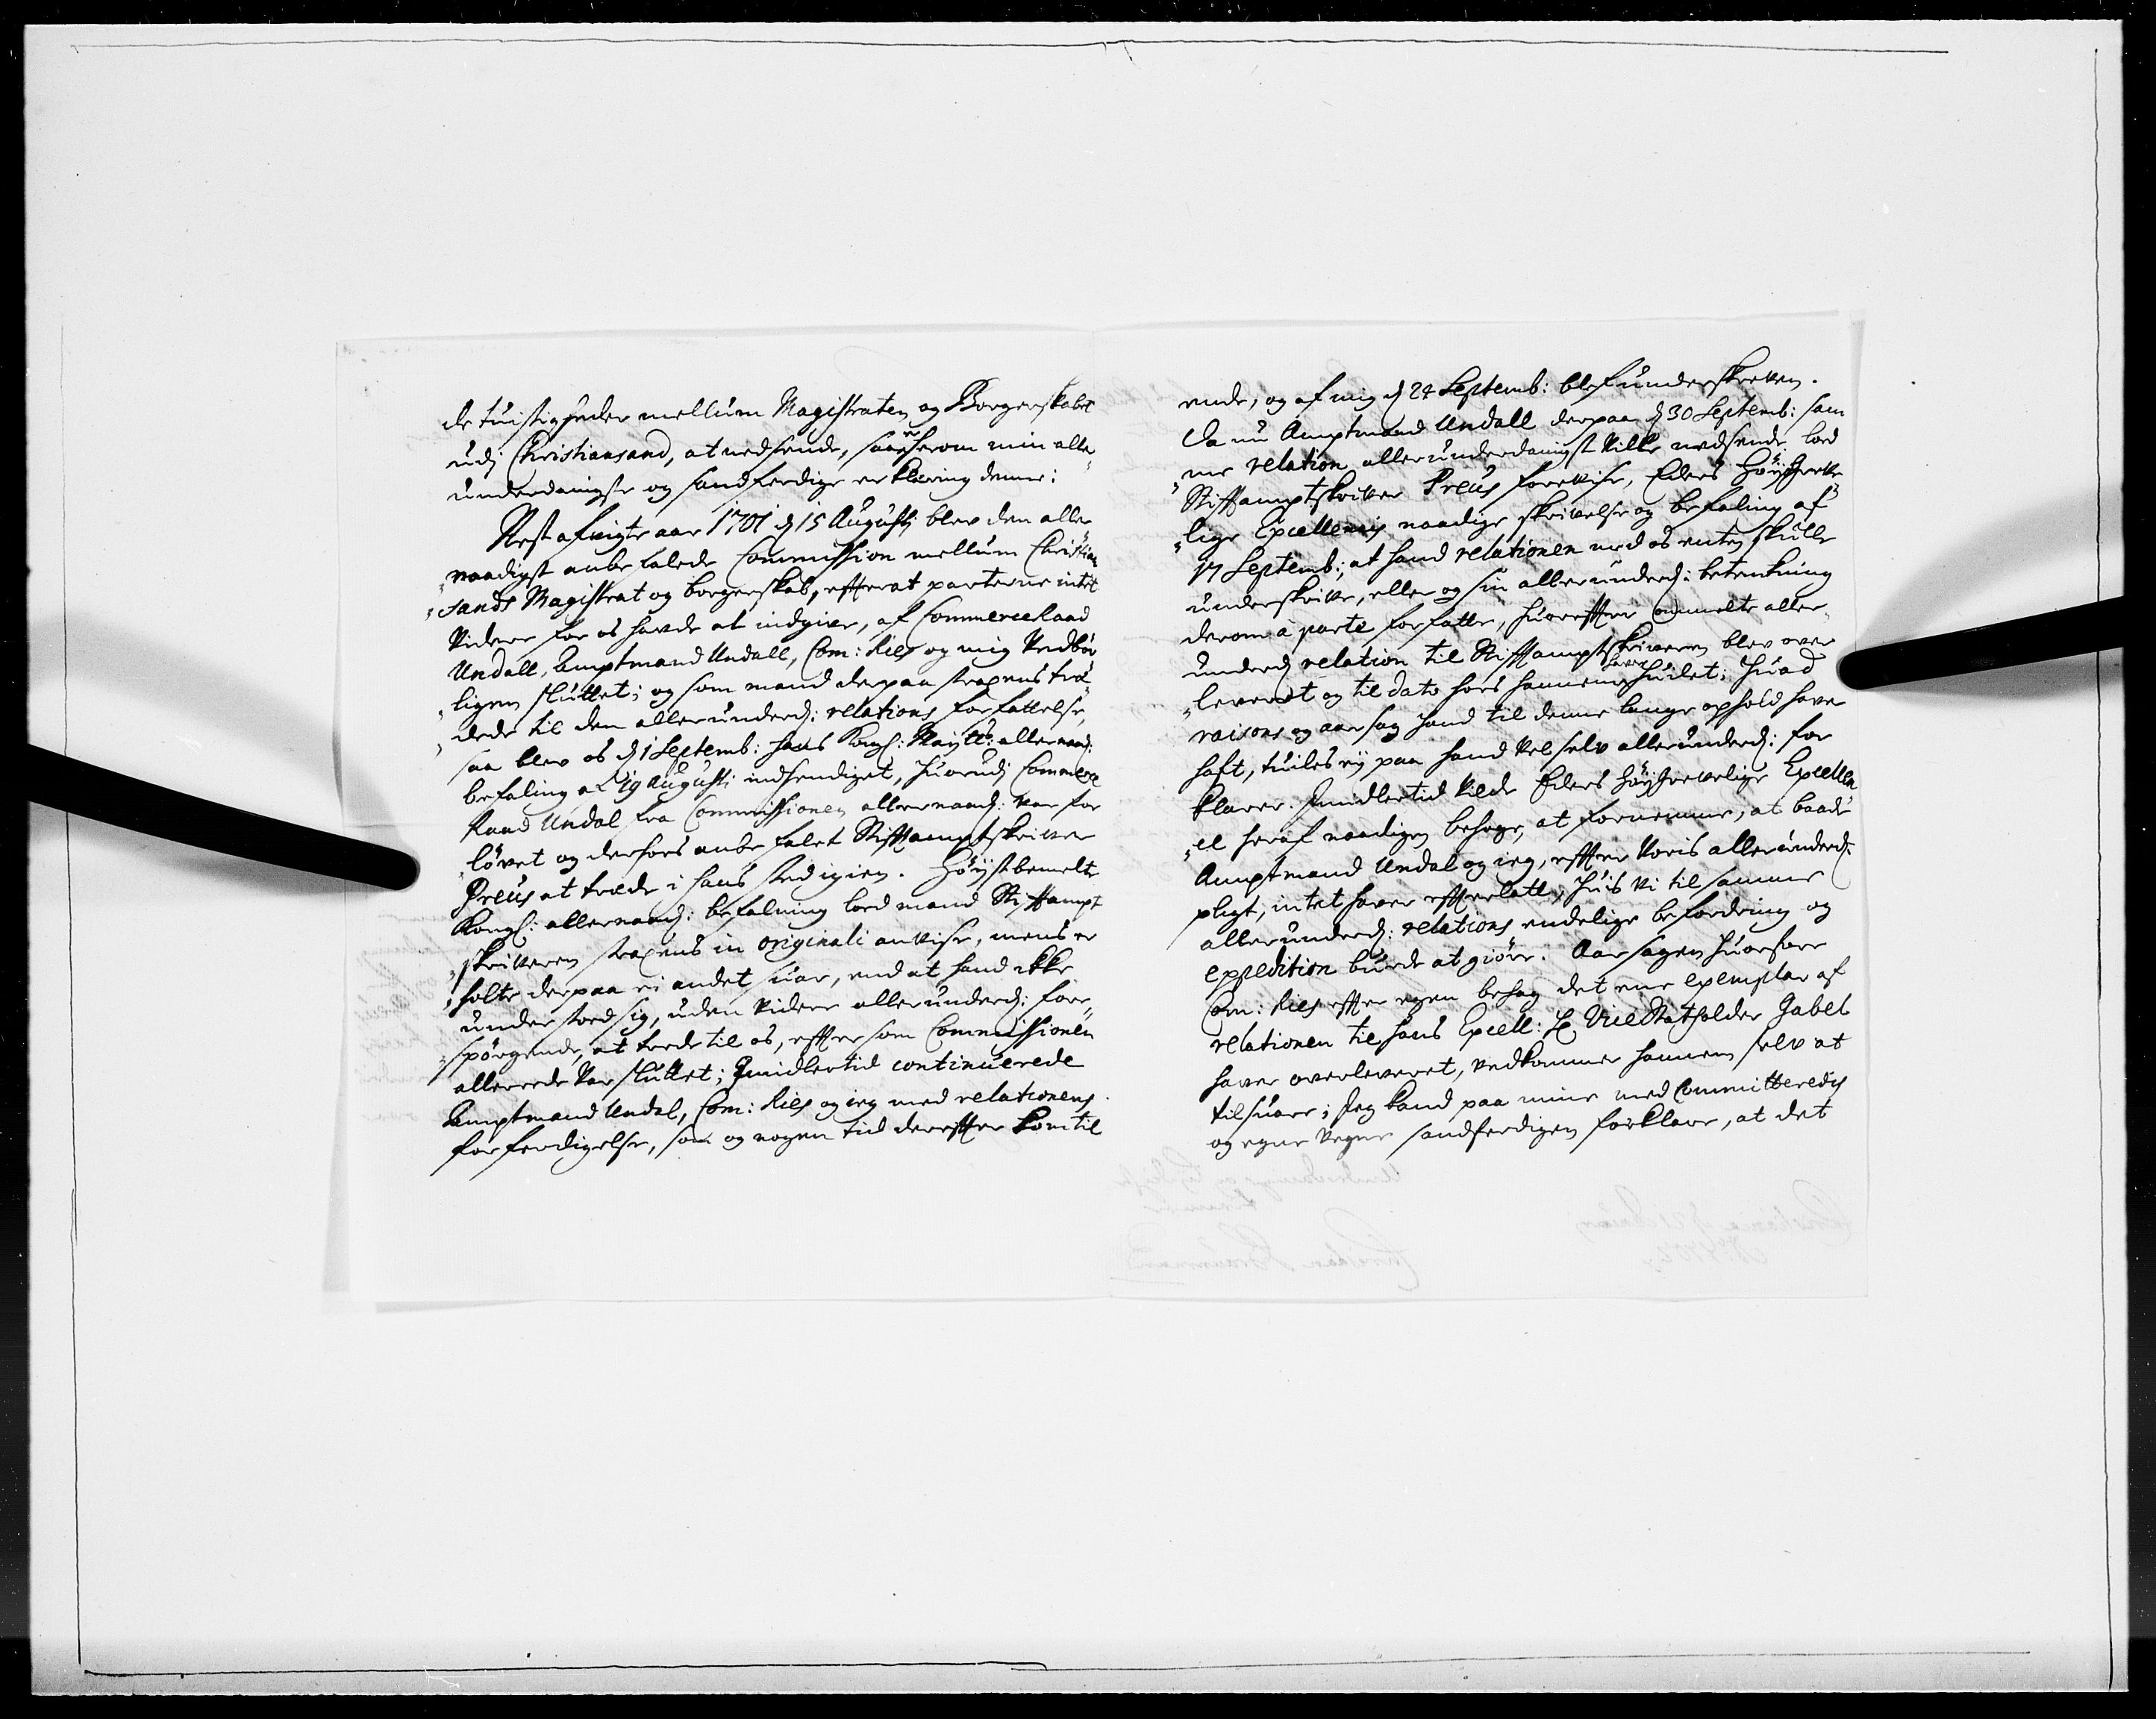 de tuistigheder mellum Magistraten og Borgerskabet
udj Christiansand, at nedsende, saa er herom min alle
underdanigste og sandferdige erklæring denne:
Nest afvigte aar 1701 d 15 Augustj blev den aller
naadigst anbefalede Commission mellum Christian
sands Magistrat og borgerskab, effterat parterne intet
videre for os hafde at indgive, af Commerceraad
Undall, Amptmand Undall, Com: Ries og mig vedbör
ligen sluttet; og som mand derpaa straxens træ
dede til den allerunderd: relations forfattelse,
saa blev os d 1 Septemb: hans Kongl: Mayts: allernaad:
befaling af 19 Augustj indhendiget, huorudj Commerce
Raad Undal fra Commissionen allernaad: var for
lövet og derfore anbefalet Stifftamptskriver
Preus at træde i hans sted igien. Höystbemelte
Kongl: allernaad: befalning loed mand Stifftampt
skriveren straxens in originali anvise, mens er
holte derpaa ei andet suar, end at hand ikke
understoed sig, uden videre allerunderd: fore
spörgende, at trede til os, effter som Commissionen
allerrede var sluttet; Imidlertid continuerede
Amptmand Undal, Com: Ries og ieg med relationens
forferdigelse, som og nogen tid dereffter kom til
ende, og af mig d 24 Septemb: blef underskreven.
Da nu Amptmand Undall derpaa d 30 Septemb: sam
me relation allerunderdanigst ville nedsende, loed
Stifftamptskriver Preus forevise, Eders Höy Greve
lige Excellences naadige skrivelse og befaling af
17 Septemb:, at hand relationen med os enten skulle
underskrive, eller og sin allerunderd: betenkning
derom à parte forfatte, huoreffter ommelte aller
underd relation til Stifftamptskriveren blev over
leveret og til dato hos hannem haver huilet; Huad
raisons og aarsag hand til denne lange ophold haver
hafft, tuiles ey paa hand vel selv allerunderd: for
klarer. Imidlertid vilde Eders Höygrevelige Excellen
ce heraf naadigen behage, at fornemme, at baade
Amptmand Undal og ieg, effter voris allerunderd:
pligt, intet haver effterlatt, huis vi til samme
allerunderd: relations endelige befordring og
expedition burde at giöre. Aarsagen huorfore
Com: Ries effter egen behag det ene exemplar af
relationen til hans Excell: Hr ViceStatholder Gabel
haver overleveret, vedkommer hannem selv at
tilsuare; Jeg kand paa mine med Committeredes
og egne vegne sandferdigen forklare, at det